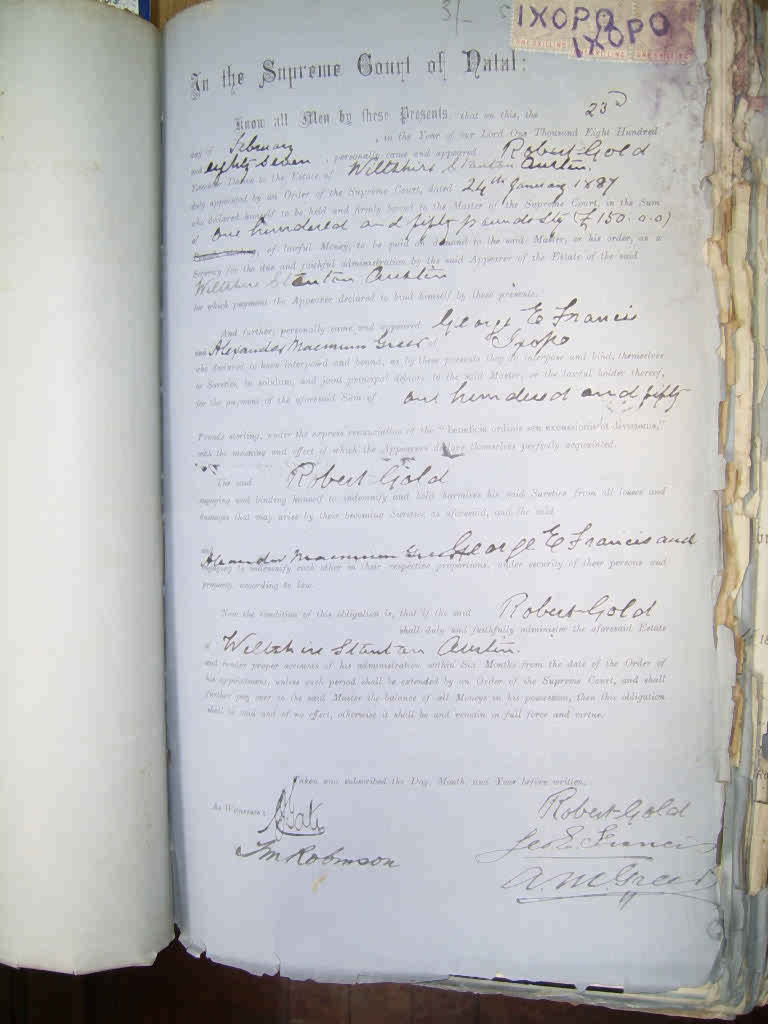 3/-
IXOPO
IXOPO
In the Supreme Court of Natal:
Know all Men by these Presents, that on this, the 23d
day of February, in the Year of our Lord One Thousand Eight Hundred
and eighty seven, personally came and appeared Robert Gold
Executor Dative to the Estate of Wiltshire Stanton Austin.
duly appointed by an Order of the Supreme Court, dated 24th January 1887
who declared himself to be held and firmly bound to the Master of the Supreme Court, in the Sum
of one hundered and fifty pounds Stg (£150.0.0)
, of lawful Money, to be paid on demand to the said Master, or his order, as a
Security for the due and faithful administration by the said Appearer of the Estate of the said
Wiltshire Stanton Austin
for which payment the Appearer declared to bind himself by these presents.
And further, personally came and appeared George E Francis
and Alexander Greer of Ixopo
who declared to have interposed and bound, as by these presents they do interpose and bind, themselves
as Sureties, in solidum, and joint principal debtors, to the said Master, or the lawful holder thereof,
for the payment of the aforesaid Sum of one hundered and fifty
Pounds sterling, under the express renunciation of the "beneficia ordinis seu excussionis et divisionis,"
with the meaning and effect of which the Appearers declare themselves perfectly acquainted.
The said Robert Gold
engaging and binding himself to indemnify and hold harmless his said Sureties from all losses and
damages that may arise by their becoming Sureties as aforesaid, and the said
George E Francis and
Alexander
engaging to indemnify each other in their respective proportions, under security of their persons and
property according to law.
Now the condition of this obligation is, that if the said Robert Gold
shall duly and faithfully administer the aforesaid Estate
of Wiltshire Stanton Austin.
and render proper accounts of his administration within Six Months from the date of the Order of
his appointment, unless such period shall be extended by an Order of the Supreme Court, and shall
further pay over to the said Master the balance of all Moneys in his possession, then this obligation
shall be void and of no effect, otherwise it shall be and remain in full force and virtue.
Taken and subscribed the Day, Month and Year before written.
As Witnesses:
Robinson
Robert Gold
Geo E. Francis
A. M. Greer